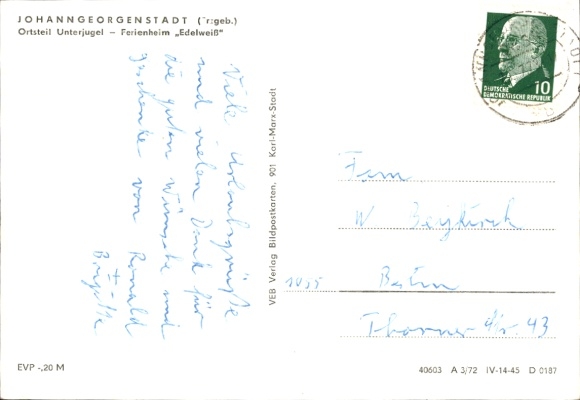 JOHANNGEORGENSTADT (Erzgeb.)
Ortsteil Unterjugel – Ferienheim „Edelweiß"
Viele Urlaubsgrüße
und vielen Dank für
die guten Wünsche und
Geschenke von Ronald
+
Birgitta
VEB Verlag Bildpostkarten, 901 Karl-Marx-Stadt
10
DEUTSCHE
DEMOKRATISCHE REPUBLIK
Fam
W
1055 Berlin
Thorner Str. 43
EVP -,20 M
40603 A 3/72 IV-14-45 D 0187